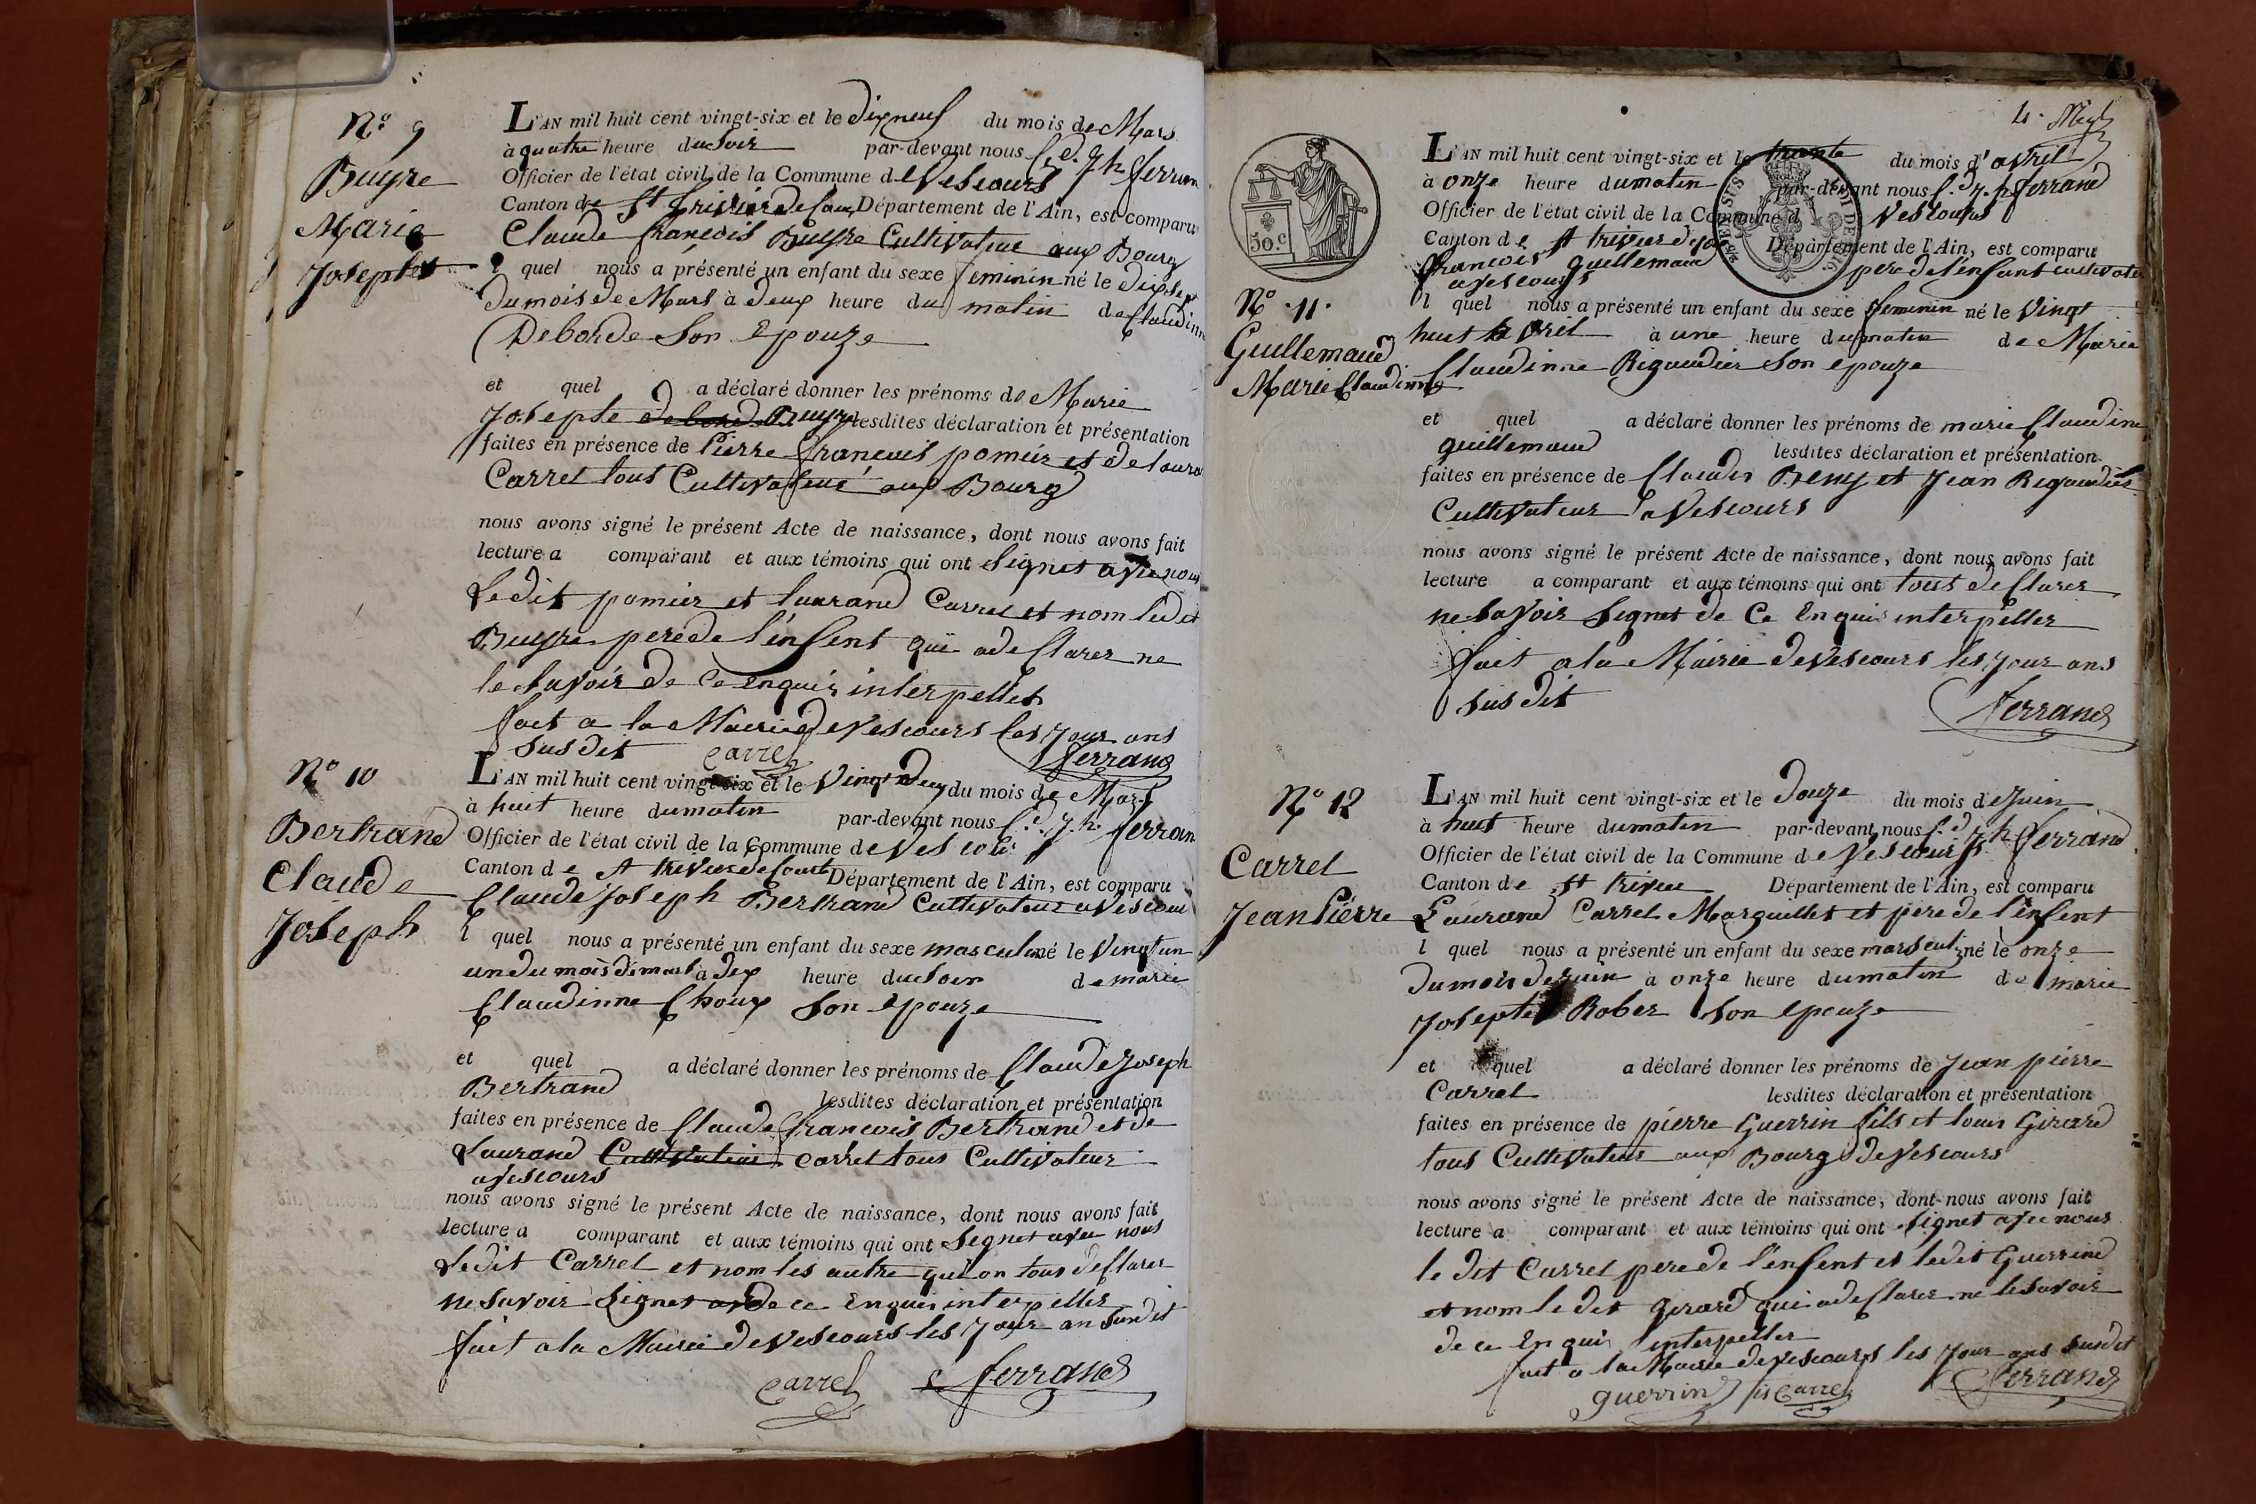 N.º 9
Buyre
Marie
Josephte
L'AN mil huit cent vingt-six et le dixneuf du mois de Mars
à quattre heure du Soir par-devant nous f.d J.h ferran
Officier de l'état civil de la Commune de Vescours
Canton de St Trivier de Cour Département de l'Ain, est comparu
Claude françois Buyre Cultivateur aux Bourg
l quel nous a présenté un enfant du sexe feminin né le dixsept
du mois de Mars à deux heure du matin de Claudinne
Deborde Son Epouze
et quel a déclaré donner les prénoms de Marie
Josephte Buyre lesdites déclaration et présentation
faites en présence de Pierre françois pomier et de laura
Carrel tous Cultivateur aux Bourg
nous avons signé le présent Acte de naissance, dont nous avons fait
lecture a comparant et aux témoins qui ont Signet avec nous
Ledit pomier et laurand Carrel et nom ledit
Buyre perede l'enfent qui adeclarer ne
le Savoir de Ce enquir interpeller
fait a la Mairie de Vescours les Jour ans
Susdit Carrel ferrand
N.º 10
Bertrand
Claude
Joseph
L'AN mil huit cent vingt-six et le Vingt deux du mois de Mars
à huit heure du matin par-devant nous f.d J.h ferran
Officier de l'état civil de la Commune de Vescours
Canton de St trivier de Court Département de l'Ain, est comparu
Claude Joseph Bertrand Cultivateur a Vescour
l quel nous a présenté un enfant du sexe masculin né le Vingt un
un du mois de mars à dix heure du Soir de marie
Claudinne Choux Son epouze
et quel a déclaré donner les prénoms de Claude Joseph
Bertrand lesdites déclaration et présentation
faites en présence de Claude françois Bertrand et de
Laurand Cultivateur carrel tous Cultivateur
a Vescours
nous avons signé le présent Acte de naissance, dont nous avons fait
lecture a comparant et aux témoins qui ont Signet avec nous
Ledit Carrel et nom les autre qui on tous declarer
ne Savoir Signet de ce Enquir interpeller
fait a la Mairie de Vescours les Jour an Susdit
Carrel ferrand
4.
50.C
N.º 11.
Guillemaud
Marie Claudinne
L'AN mil huit cent vingt-six et le trente du mois d'avril
à onze heure du matin par-devant nous f.d J.h ferrand
Officier de l'état civil de la Commune d Vescours
Canton de St trivier de Département de l'Ain, est comparu
francois guillemaud pere de l'enfant cultivateur
a Vescours
l quel nous a présenté un enfant du sexe feminin né le Vingt
huit avril à une heure du matin de Marie
Claudinne Rigaudier Son epouze
et quel a déclaré donner les prénoms de marie Claudine
guillemaud lesdites déclaration et présentation
faites en présence de Claude Beny et Jean Rigaudier
Cultivateur a Vescours
nous avons signé le présent Acte de naissance, dont nous avons fait
lecture a comparant et aux témoins qui ont tous declarer
ne Savoir Signet de Ce Enquir interpeller
fait a la Mairie de Vescours les Jour ans
Sus dit
ferrand
N.º 12
Carrel
Jean Pierre
L'AN mil huit cent vingt-six et le douze du mois de Juin
à huit heure du matin par-devant nous f.d J.h ferrand
Officier de l'état civil de la Commune de Vescours
Canton de St trivier Département de l'Ain, est comparu
Laurand Carrel Marguillet et pere de l'enfent
l quel nous a présenté un enfant du sexe marsculin né le onze
du mois de Juin à onze heure du matin de marie
Josephte Rober Son epouze
et quel a déclaré donner les prénoms de Jean pierre
Carrel lesdites déclaration et présentation
faites en présence de pierre Guerrin fils et louis Girard
tous Cultivateur aux Bourg de Vescours
nous avons signé le présent Acte de naissance, dont nous avons fait
lecture a comparant et aux témoins qui ont Signet avec nous
le dit Carrel perede l'enfent et ledit Guerrind
et nom le dit girard qui adeclarer ne le Savoir
de ce Enquir interpeller
fait a la Mairie de Vescours les Jour ans Susdit
guerrin fis Carrel ferrand